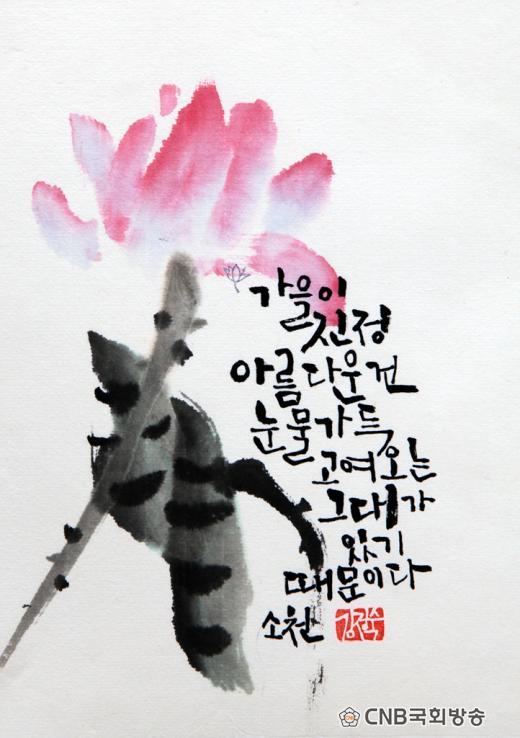 가을이
진정
아름다운건
눈물가득
고여오는
그대가
있기
때문이다
소천
CNB국회방송